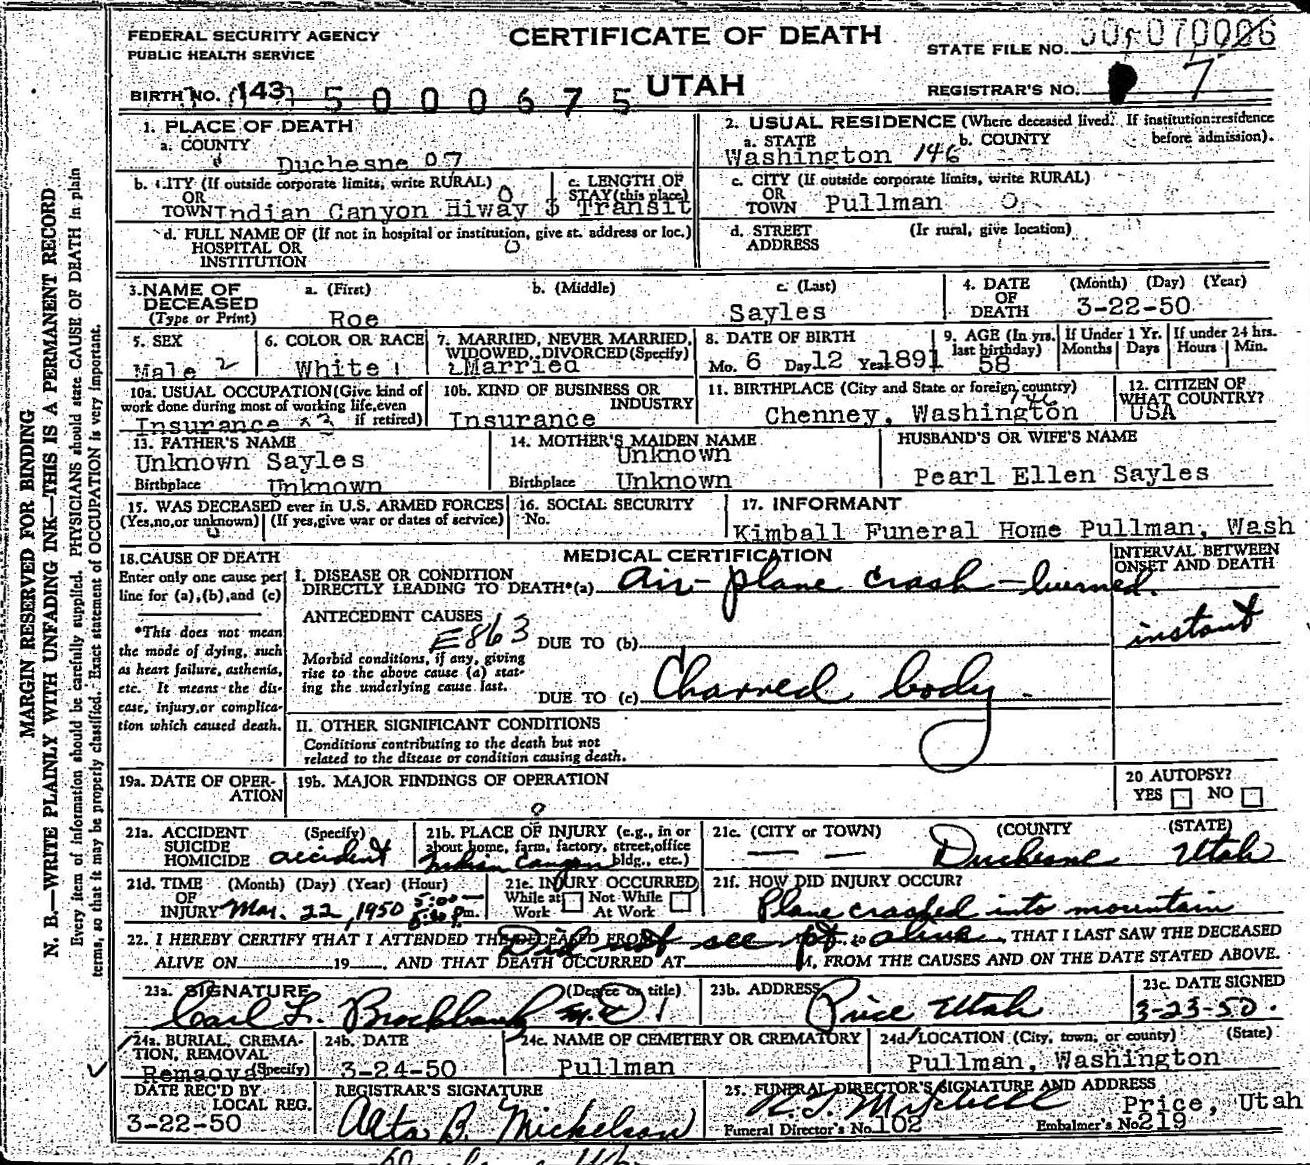 FEDERAL SECURITY AGENCY
PUBLIC HEALTH SERVICE
CERTIFICATE OF DEATH
UTAH
STATE FILE NO.
REGISTRAR'S NO. 7
BIRTH NO. (143) 5 0 0 0 6 7 5
1. PLACE OF DEATH
a. COUNTY
Duchesne 07
2. USUAL RESIDENCE (Where deceased lived. If institution:residence before admission).
a. STATE b. COUNTY
Washington 146
b. CITY (If outside corporate limits, write RURAL)
OR
TOWN Indian Canyon Hiway
c. LENGTH OF
STAY (this place)
Transit
c. CITY (If outside corporate limits, write RURAL)
OR
TOWN Pullman
d. FULL NAME OF (If not in hospital or institution, give st. address or loc.)
HOSPITAL OR
INSTITUTION
d. STREET (Ir rural, give location)
ADDRESS
3. NAME OF DECEASED
(Type or Print)
a. (First) b. (Middle) c. (Last)
Roe Sayles
4. DATE OF DEATH (Month) (Day) (Year)
3-22-50
5. SEX
Male 2
6. COLOR OR RACE
White 1
7. MARRIED, NEVER MARRIED,
WIDOWED, DIVORCED (Specify)
Married
8. DATE OF BIRTH
Mo. 6 Day 12 Year 1891
9. AGE (In yrs. last birthday)
58
If Under 1 Yr.
Months Days
If under 24 hrs.
Hours Min.
10a. USUAL OCCUPATION (Give kind of
work done during most of working life, even
if retired)
Insurance
10b. KIND OF BUSINESS OR
INDUSTRY
Insurance
11. BIRTHPLACE (City and State or foreign country)
146
Chenney, Washington
12. CITIZEN OF
WHAT COUNTRY?
USA
13. FATHER'S NAME
Unknown Sayles
Birthplace Unknown
14. MOTHER'S MAIDEN NAME
Unknown
Birthplace Unknown
HUSBAND'S OR WIFE'S NAME
Pearl Ellen Sayles
15. WAS DECEASED ever in U.S. ARMED FORCES
(Yes, no, or unknown) (If yes, give war or dates of service)
16. SOCIAL SECURITY
No.
17. INFORMANT
Kimball Funeral Home Pullman, Wash
18. CAUSE OF DEATH
Enter only one cause per
line for (a), (b), and (c)
*This does not mean
the mode of dying, such
as heart failure, asthenia,
etc. It means the dis-
ease, injury, or complica-
tion which caused death.
MEDICAL CERTIFICATION
INTERVAL BETWEEN
ONSET AND DEATH
I. DISEASE OR CONDITION
DIRECTLY LEADING TO DEATH*(a) air-plane crash - burned.
instant
ANTECEDENT CAUSES
E863
DUE TO (b)
Morbid conditions, if any, giving
rise to the above cause (a) stat-
ing the underlying cause last.
DUE TO (c) Charred body.
II. OTHER SIGNIFICANT CONDITIONS
Conditions contributing to the death but not
related to the disease or condition causing death.
19a. DATE OF OPER-
ATION
19b. MAJOR FINDINGS OF OPERATION
20 AUTOPSY?
YES NO
21a. ACCIDENT (Specify)
SUICIDE
HOMICIDE accident
21b. PLACE OF INJURY (e.g., in or
about home, farm, factory, street, office
bldg., etc.)
Indian Canyon
21c. (CITY or TOWN) (COUNTY) (STATE)
— — Duchesne Utah
21d. TIME (Month) (Day) (Year) (Hour)
OF
INJURY Mar. 22, 1950 5:00 — 5:30 Pm.
21e. INJURY OCCURRED
While at Work
Not While At Work
21f. HOW DID INJURY OCCUR?
Plane crashed into mountain
22. I HEREBY CERTIFY THAT I ATTENDED THE DECEASED FROM Did not see pt. to alive, THAT I LAST SAW THE DECEASED
ALIVE ON 19 , AND THAT DEATH OCCURRED AT M, FROM THE CAUSES AND ON THE DATE STATED ABOVE.
23a. SIGNATURE (Degree or title)
Carl L. Brockbank M.D.
23b. ADDRESS
Price Utah
23c. DATE SIGNED
3-23-50.
24a. BURIAL, CREMA-
TION, REMOVAL
(Specify)
Remaovd
24b. DATE
3-24-50
24c. NAME OF CEMETERY OR CREMATORY
Pullman
24d. LOCATION (City, town, or county) (State)
Pullman, Washington
DATE REC'D BY
LOCAL REG.
3-22-50
REGISTRAR'S SIGNATURE
Alta B. Mickelson
25. FUNERAL DIRECTOR'S SIGNATURE AND ADDRESS
Mitchell Price, Utah
Funeral Director's No. 102 Embalmer's No 219
MARGIN RESERVED FOR BINDING
N. B.—WRITE PLAINLY WITH UNFADING INK—THIS IS A PERMANENT RECORD
Every item of information should be carefully supplied. PHYSICIANS should state CAUSE OF DEATH in plain
terms, so that it may be properly classified. Exact statement of OCCUPATION is very important.